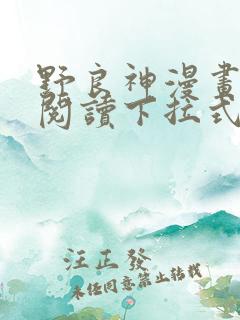 野良神漫畫
閱讀下拉式
汪正發
未经同意禁止转载